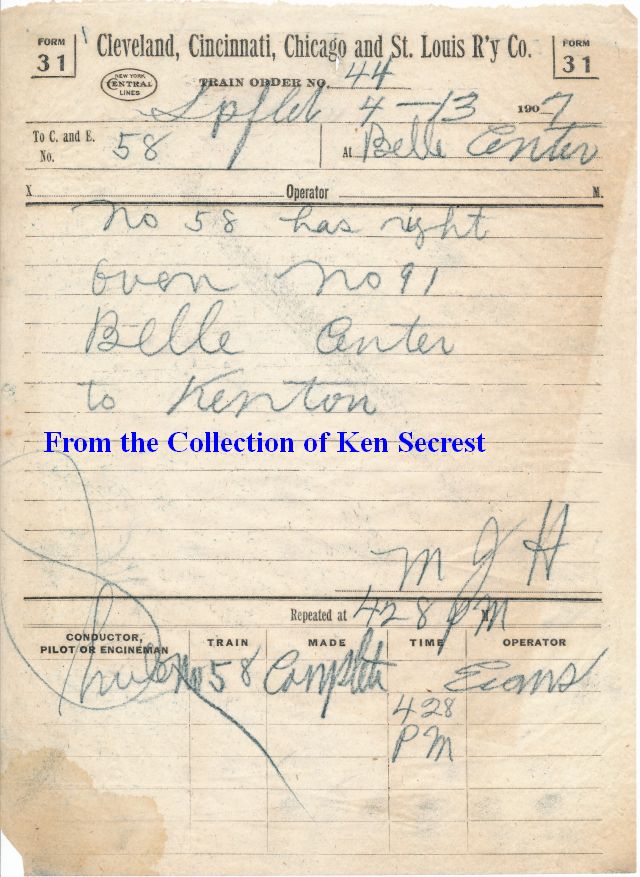 FORM 31 Cleveland, Cincinnati, Chicago and St. Louis R'y Co. FORM 31
NEW YORK CENTRAL LINES
TRAIN ORDER NO. 44
Spfld 4-13 1907
To C. and E.
No. 58 At Belle Center
X Operator M.
No 58 has right
over No 91
Belle Center
to Kenton
From the Collection of Ken Secrest
M J H
Repeated at 428 PM M.
CONDUCTOR, PILOT OR ENGINEMAN TRAIN MADE TIME OPERATOR
No 58 Complete Evans
428
PM